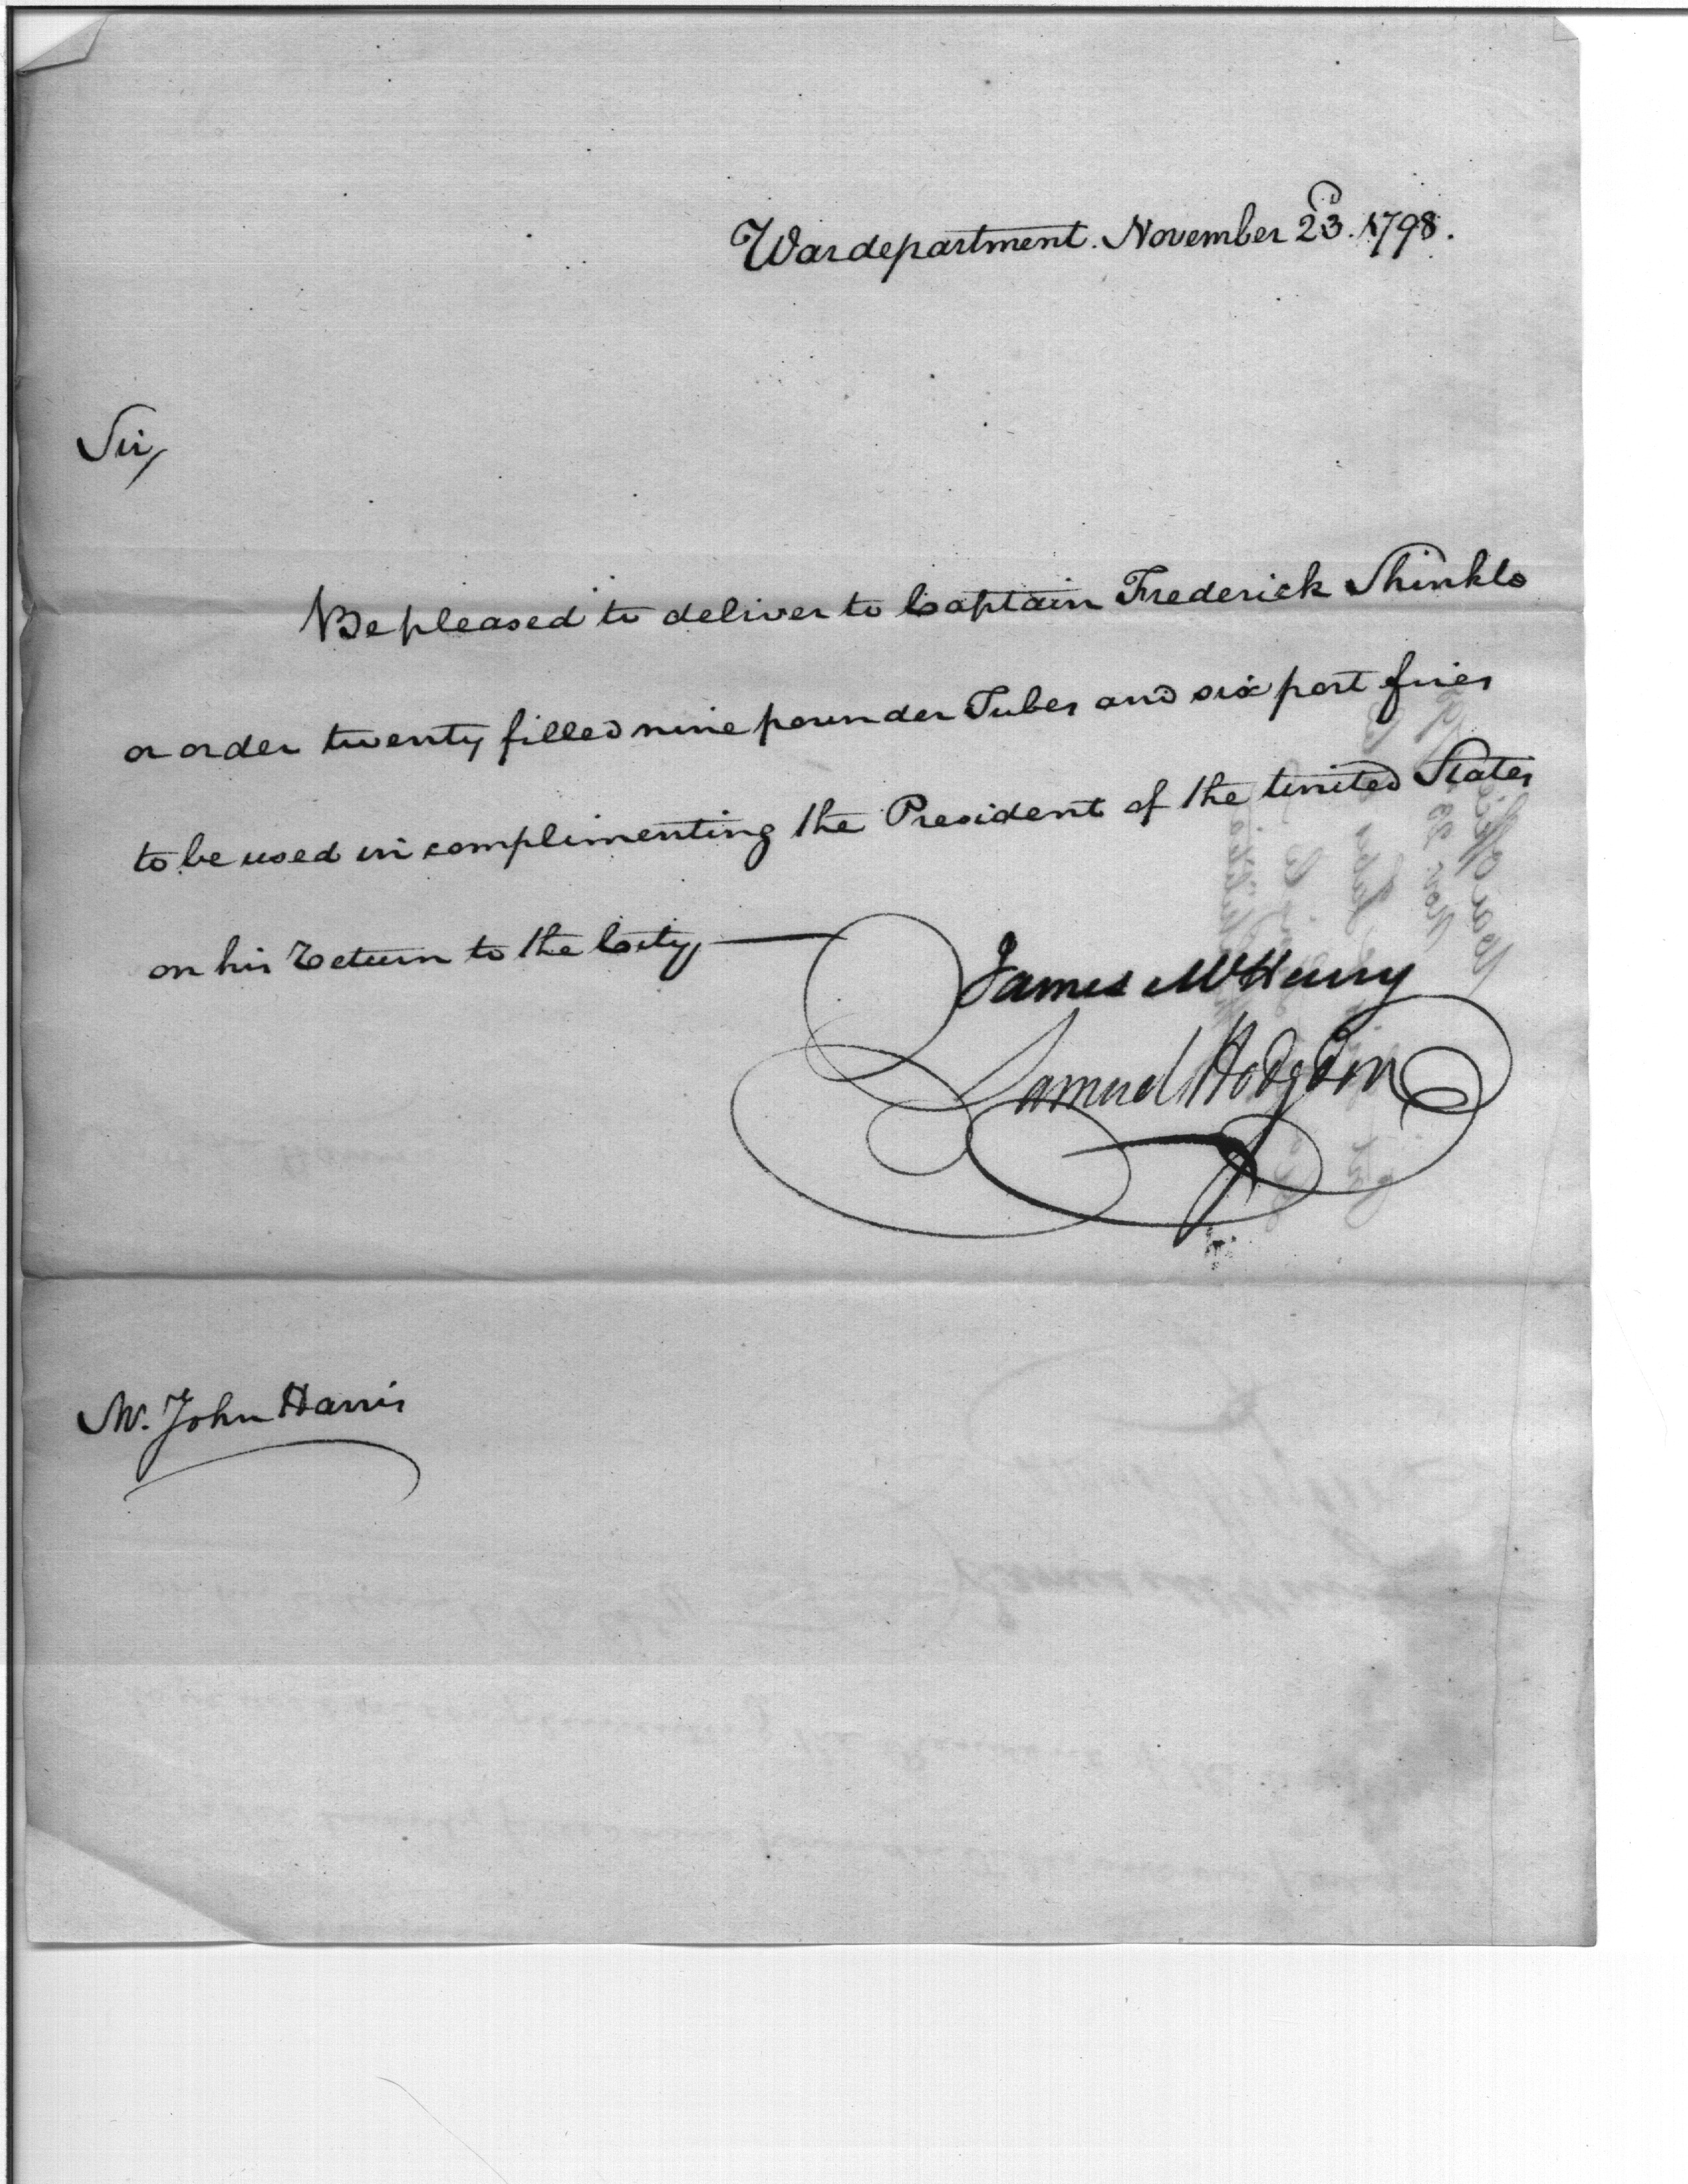 War department. November 23d. 1798.
Sir,
Be pleased to deliver to Captain Frederick Shinklo
or order twenty filled nine pounder Tubes and six port fires
to be used in complimenting the President of the United States
on his Return to the City,
James McHenry
Samuel Hodgdon
Mr. John Harris